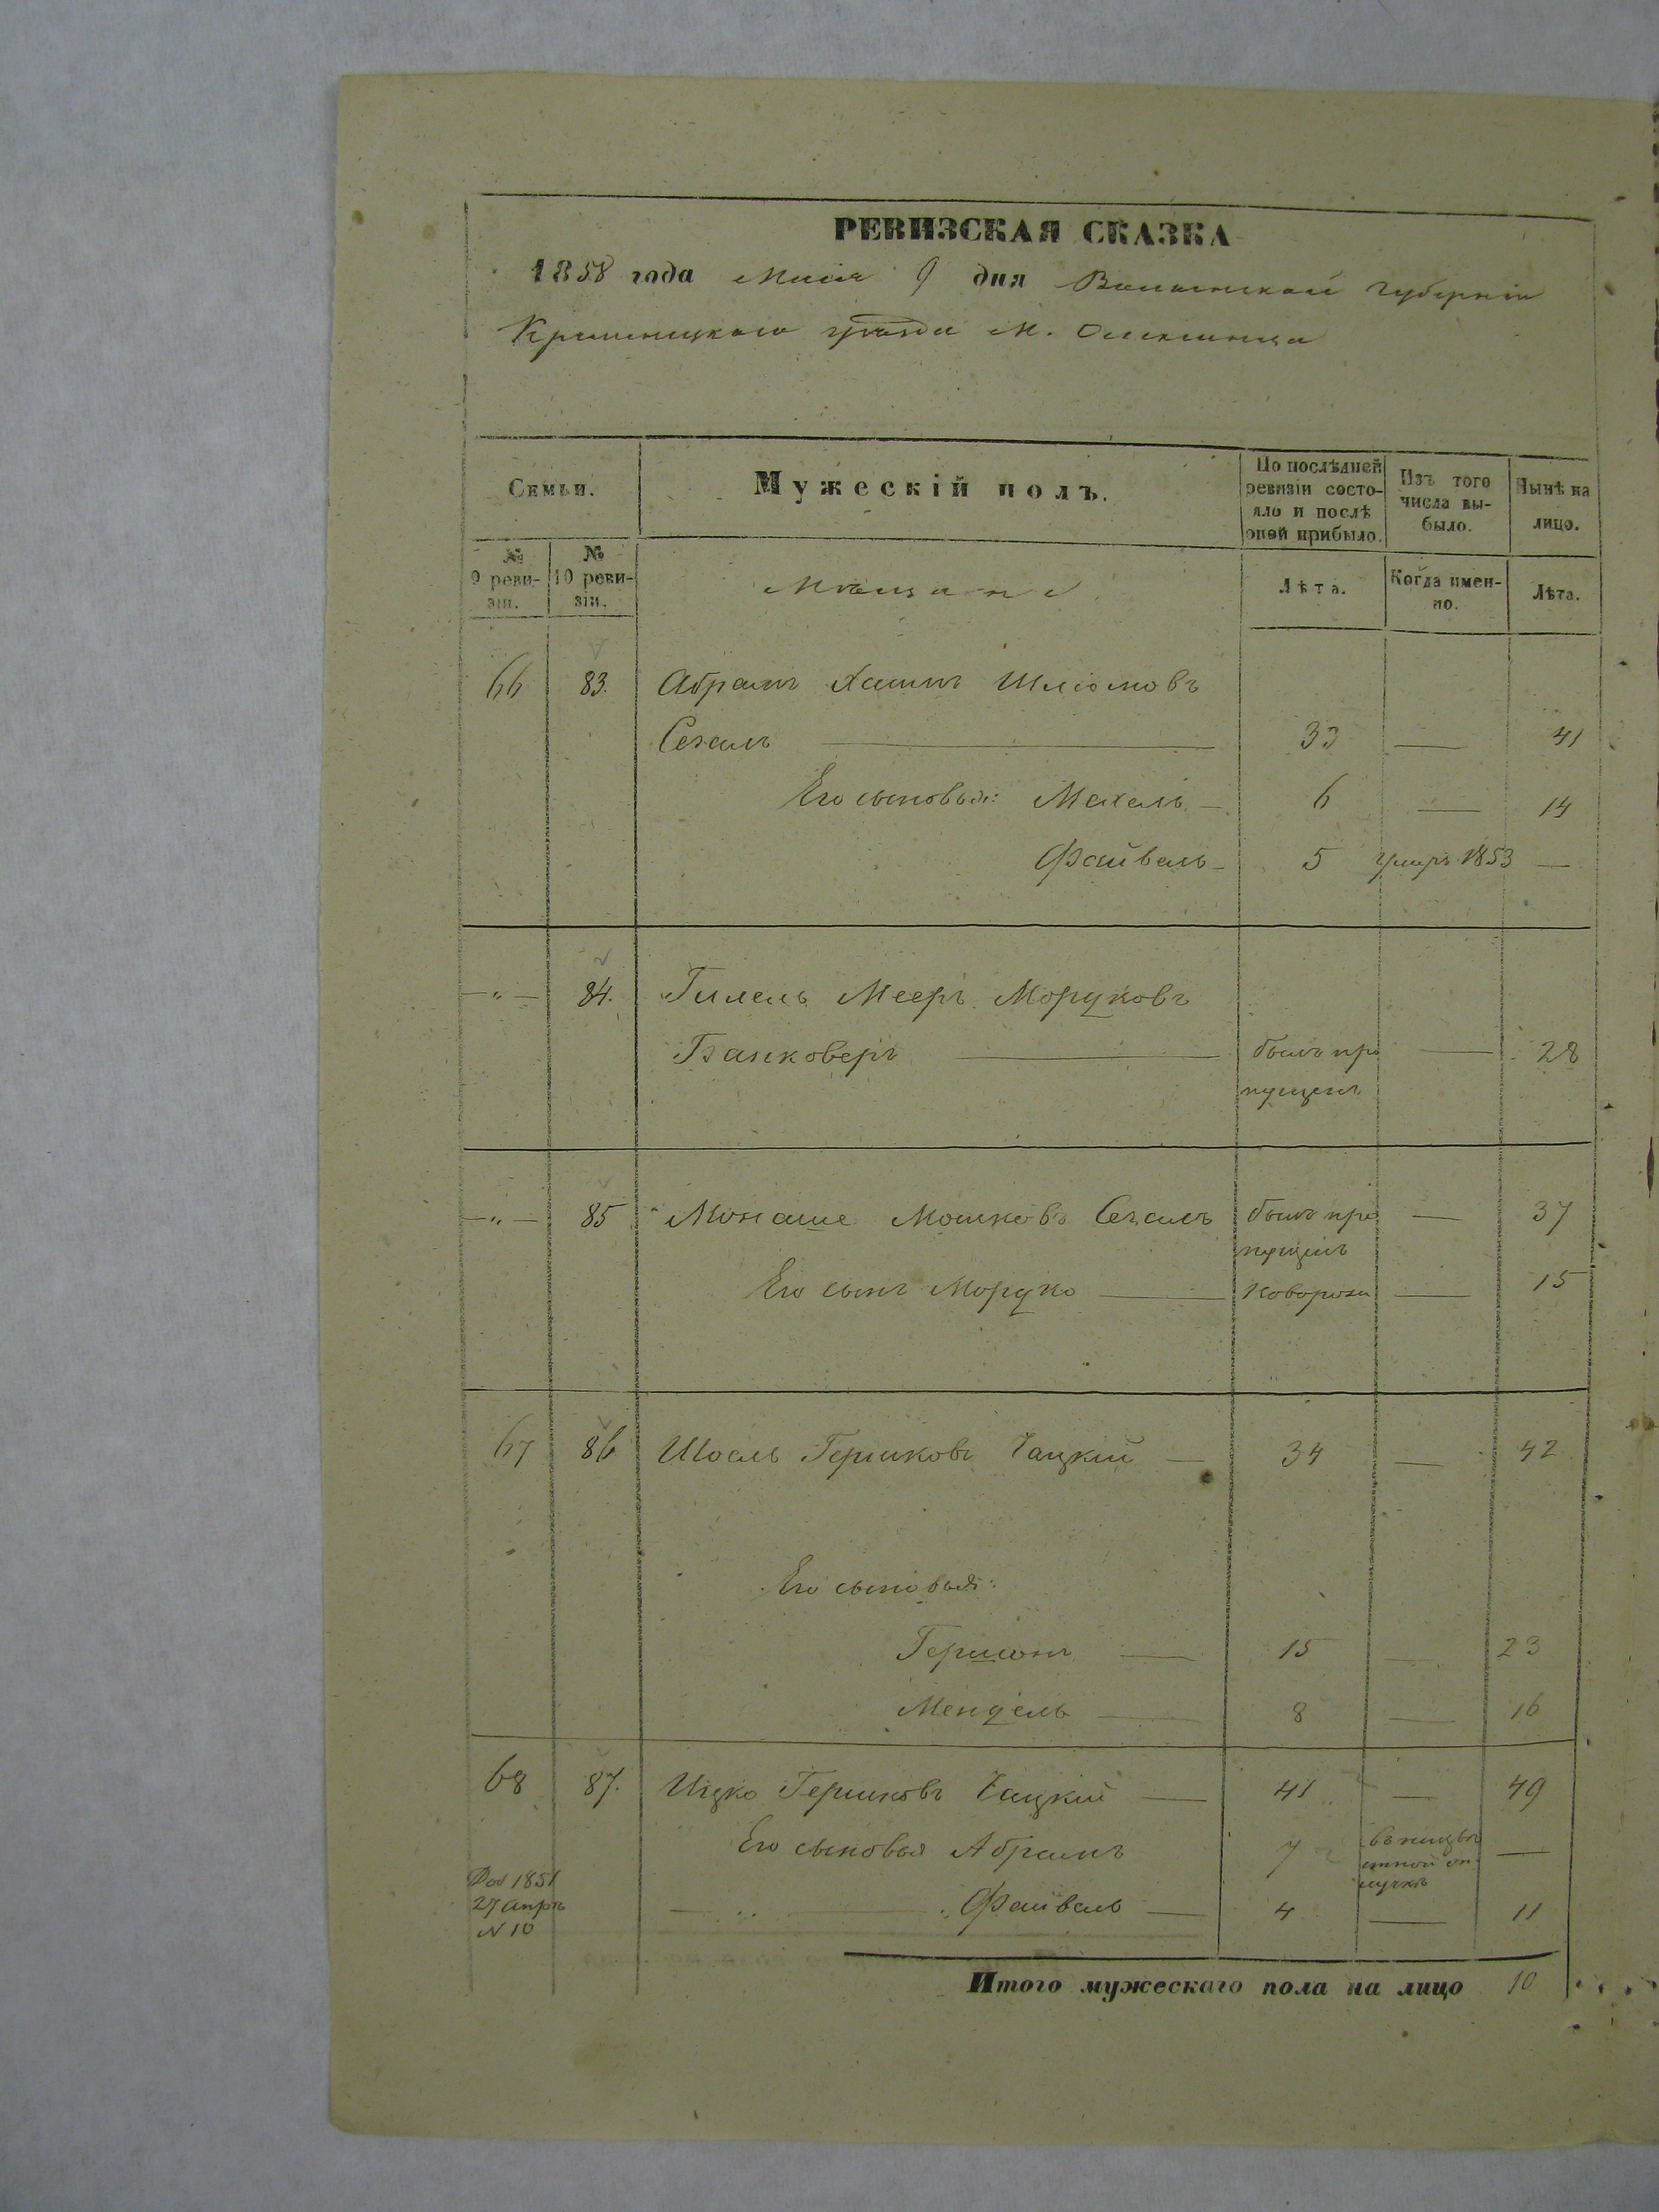 РЕВИЗСКАЯ СКАЗКА
1858 года Маія 9 дня Волынской губерніи
Кременецкаго уѣзда м. Олексинца
Семьи.
Мужескій полъ.
По послѣдней ревизіи состояло и послѣ оной прибыло.
Изъ того числа выбыло.
Нынѣ на лицо.
№ 9 ревизіи.
№ 10 ревизіи.
Мѣщане
Лѣта.
Когда именно.
Лѣта.
66 83. Абрамъ Хаимъ Шлiомовъ
Сегалъ — 33 — 41
Его сыновья: Махаль — 6 — 14
Файвель — 5 умеръ 1853 —
— " — 84. Гилель Мееръ Мордковъ
Банковеръ — былъ про — 28
пущенъ
— " — 85 Монаше Мошковъ Сегалъ былъ про — 37
пущенъ
Его сынъ Мордко — новорож — 15
67 86 Шоель Гершковъ Чацкій — 34 — 42
Его сыновья:
Гершонъ — 15 — 23
Мендель — 8 — 16
68 87. Ицко Гершковъ Чацкій — 41 — 49
Его сыновья Абрамъ 7 —
Файвель — 4 — 11
1851
27 Апрѣ
N 10
Итого мужескаго пола на лицо 10